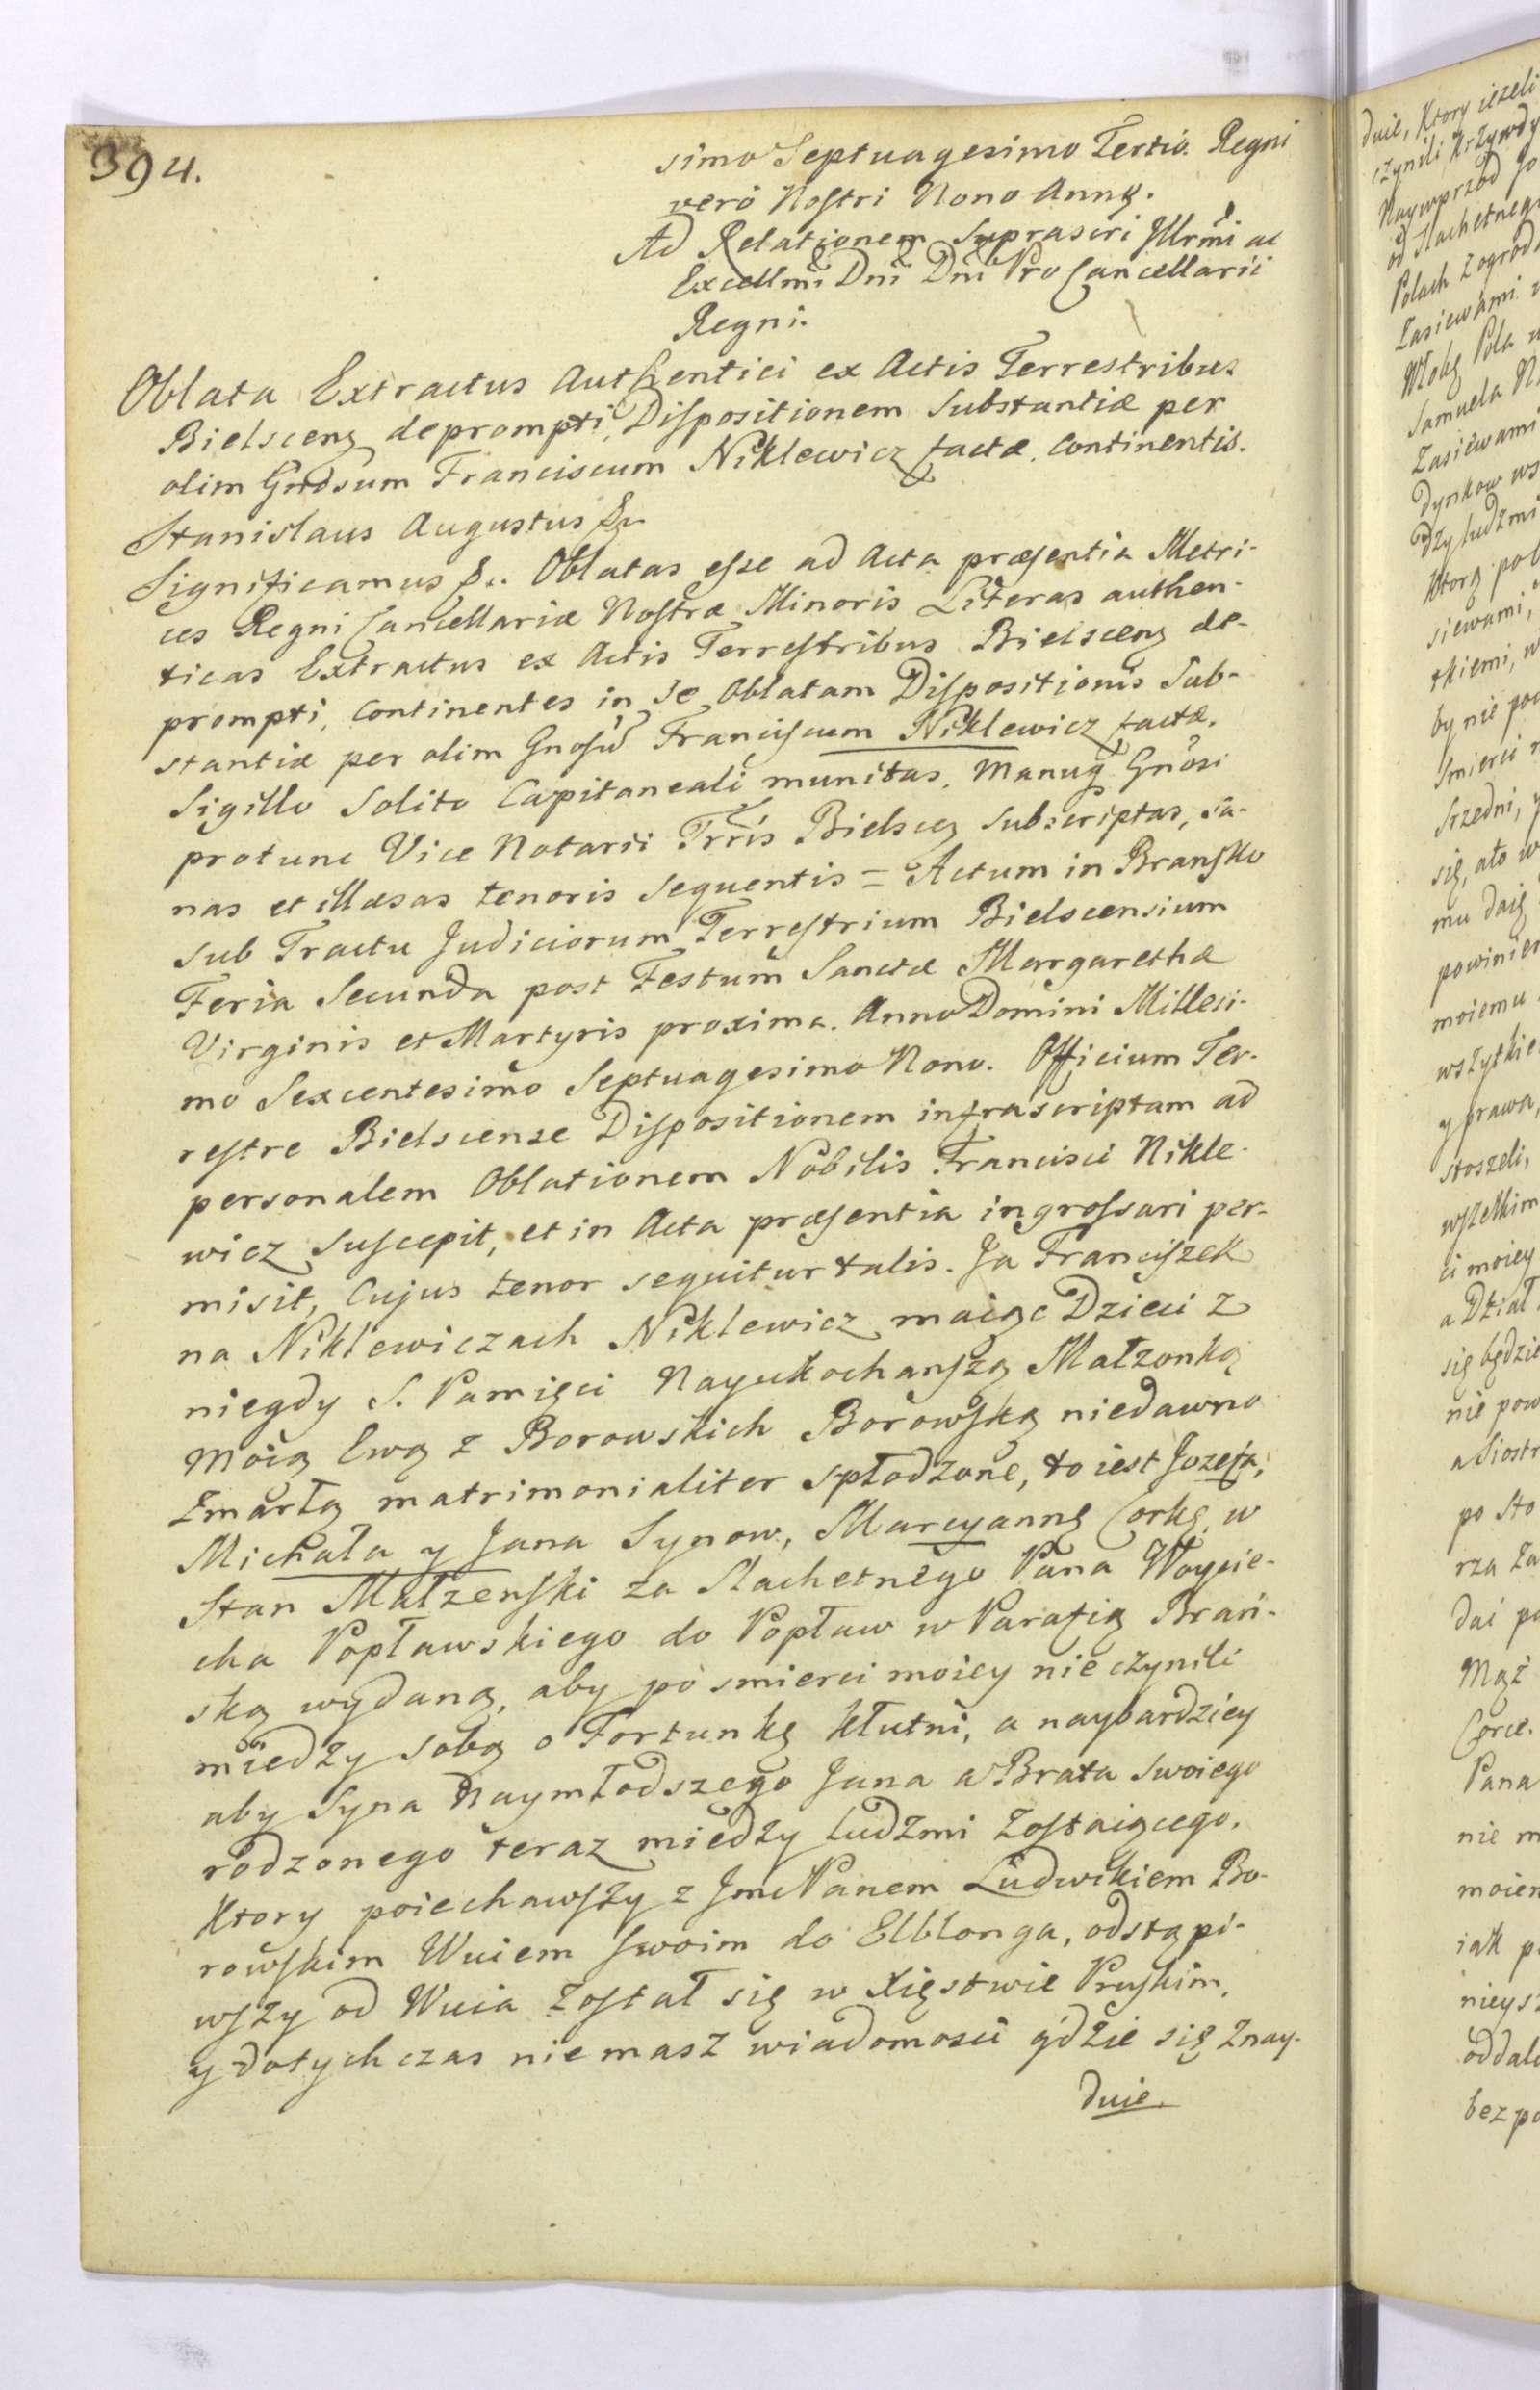 394.
simo Septuagesimo Tertio. Regni
vero Nostri Nono Anno.
Ad Relationem Suprascri Illrmi ac
Excellmi Dni Dni Pro Cancellarii
Regni.
Oblata Extractus Authentici ex Actis Terrestribus
Bielscens deprompti, Dispositionem Substantiæ per
olim Gndsum Franciscum Niklewicz factæ. continentis.
Stanislaus Augustus &c.
Significamus &c. Oblatas esse ad Acta præsentia Metri-
ces Regni Cancellariæ Nostræ Minoris Literas authen-
ticas Extractus ex Actis Terrestribus Bielscens de-
prompti, continentes in se Oblatam Dispositionis Sub-
stantiæ per olim Gnosu Franciscum Niklewicz factæ.
Sigillo Solito Capitaneali munitas, Manuq Gnosi
protunc Vice Notarii Trris Bielscens subscriptas, sa-
nas et illæsas tenoris sequentis = Actum in Bransko
sub Tractu Judiciorum Terrestrium Bielscensium
Feria Secunda post Festum Sanctæ Margarethæ
Virginis et Martyris proxima. Anno Domini Millesi-
mo Sexcentesimo Septuagesimo Nono. Officium Ter-
restre Bielscense Dispositionem infrascriptam ad
personalem Oblationem Nobilis Francisci Nikle-
wicz suscepit, et in Acta præsentia ingrossari per-
misit, Cujus tenor sequitur talis. Ja Franciszek
na Niklewiczach Niklewicz maiąc Dzieci z
niegdy S. Pamięci Nayukochanszą Małzonką
moią Ewą z Borowskich Borowską niedawno
zmarłą matrimonialiter spłodzone, to iest Jozefa,
Michała y Jana Synow, Marcyannę Corkę w
Stan Małzenski za Slachetnego Pana Woycie-
cha Popławskiego do Popław w Parafią Brań-
ską wydaną, aby po smierci moiey nie czynili
miedzy sobą o Fortunkę kłutni, a naybardziey
aby Syna Naymłodszego Jana a Brata swoiego
rodzonego teraz miedzy ludzmi zostaiącego.
Ktory poiechawszy z Jmc Panem Ludwikiem Bo-
rowskim Wuiem swoim do Elblonga, odstąpi-
wszy od Wuia został się w Xięstwie Pruskim,
y dotychczas nie masz wiadomosci gdzie się znay-
duie.
duie, Ktory iezeli
czynili krzywdy
Naywprzod
od Slachetneg
Polach z ogrod
Zasiewami
Włokę Pola
Samuela
Zasiewami
dynkow ws
dzy ludzmi
Ktorą
siewami,
tkiemi, w
by nie
Smierci
srzedni,
się, ato w
mu daię
powinien
moiemu
wszytkie
y prawa,
stoszeli,
wszelkim
ci moiey
a Dział
się będzie
nie pow
a Siostr
po Sto
rza
dać
Mąż
Corce.
Pana
nie m
moien
iak
nieys
oddal
bez po